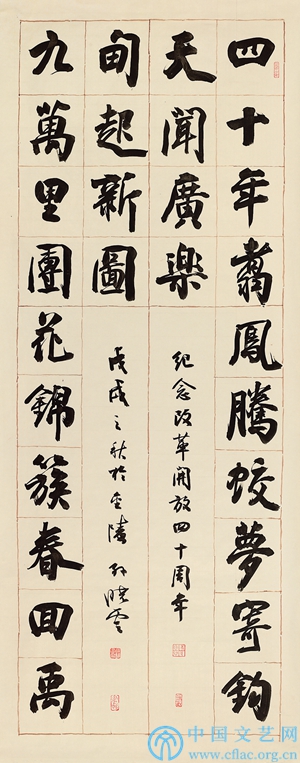 四十年翥鳳騰蛟夢寄鈞
天聞廣樂
九萬里團花錦簇春回禹
甸起新圖
紀念改革開放四十周年
戊戌之秋於金陵 孫曉雲
中国文艺网
www.cflac.org.cn